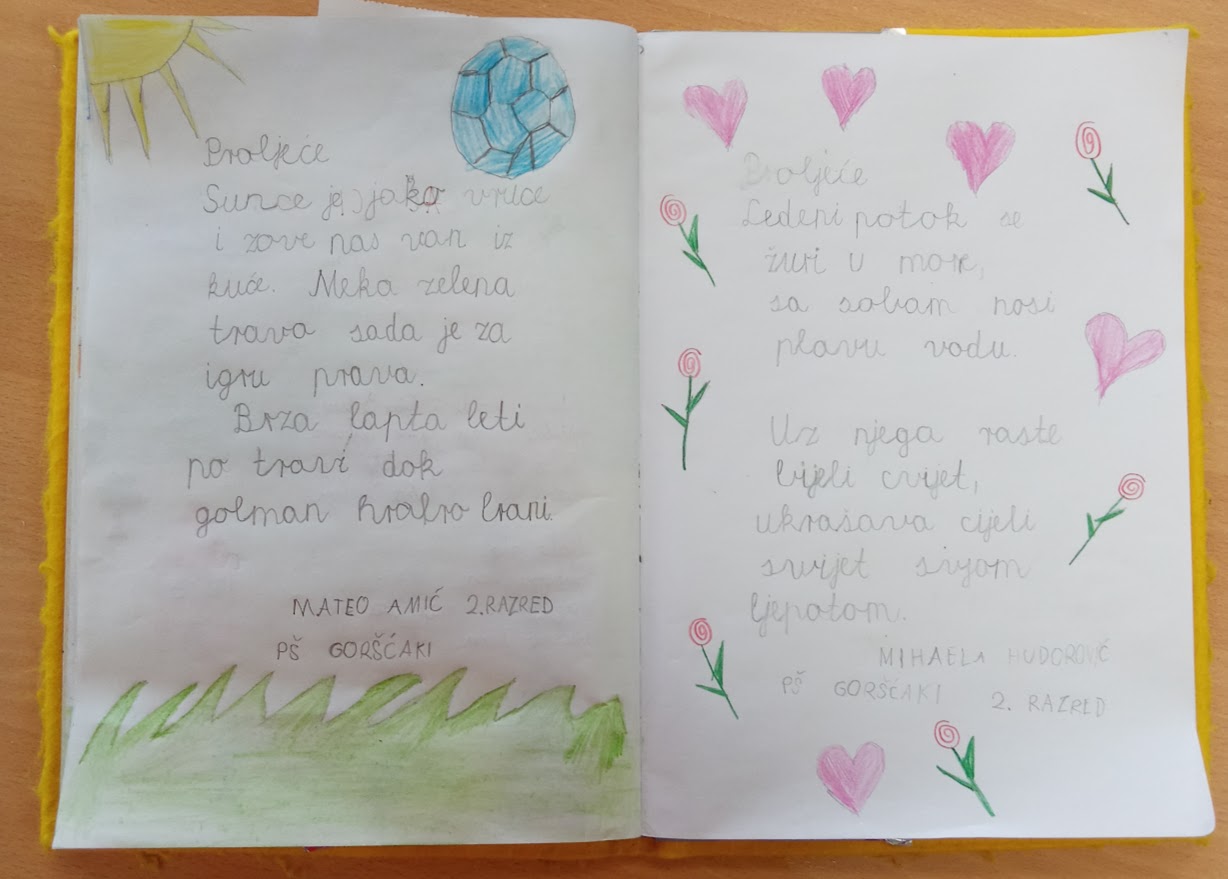 Proljeće
Sunce je jako vruće
i zove nas van iz
kuće. Meka zelena
trava sada je za
igru prava.
Brza lopta leti
po travi dok
golman hrabro brani.
MATEO AMIĆ 2.RAZRED
PŠ GORŠĆAKI
Proljeće
Ledeni potok se
žuri u more,
sa sobom nosi
plavu vodu.
Uz njega raste
bijeli cvijet,
ukrašava cijeli
svijet svojom
ljepotom.
MIHAELA HUDOROVIĆ
PŠ GORŠĆAKI 2. RAZRED